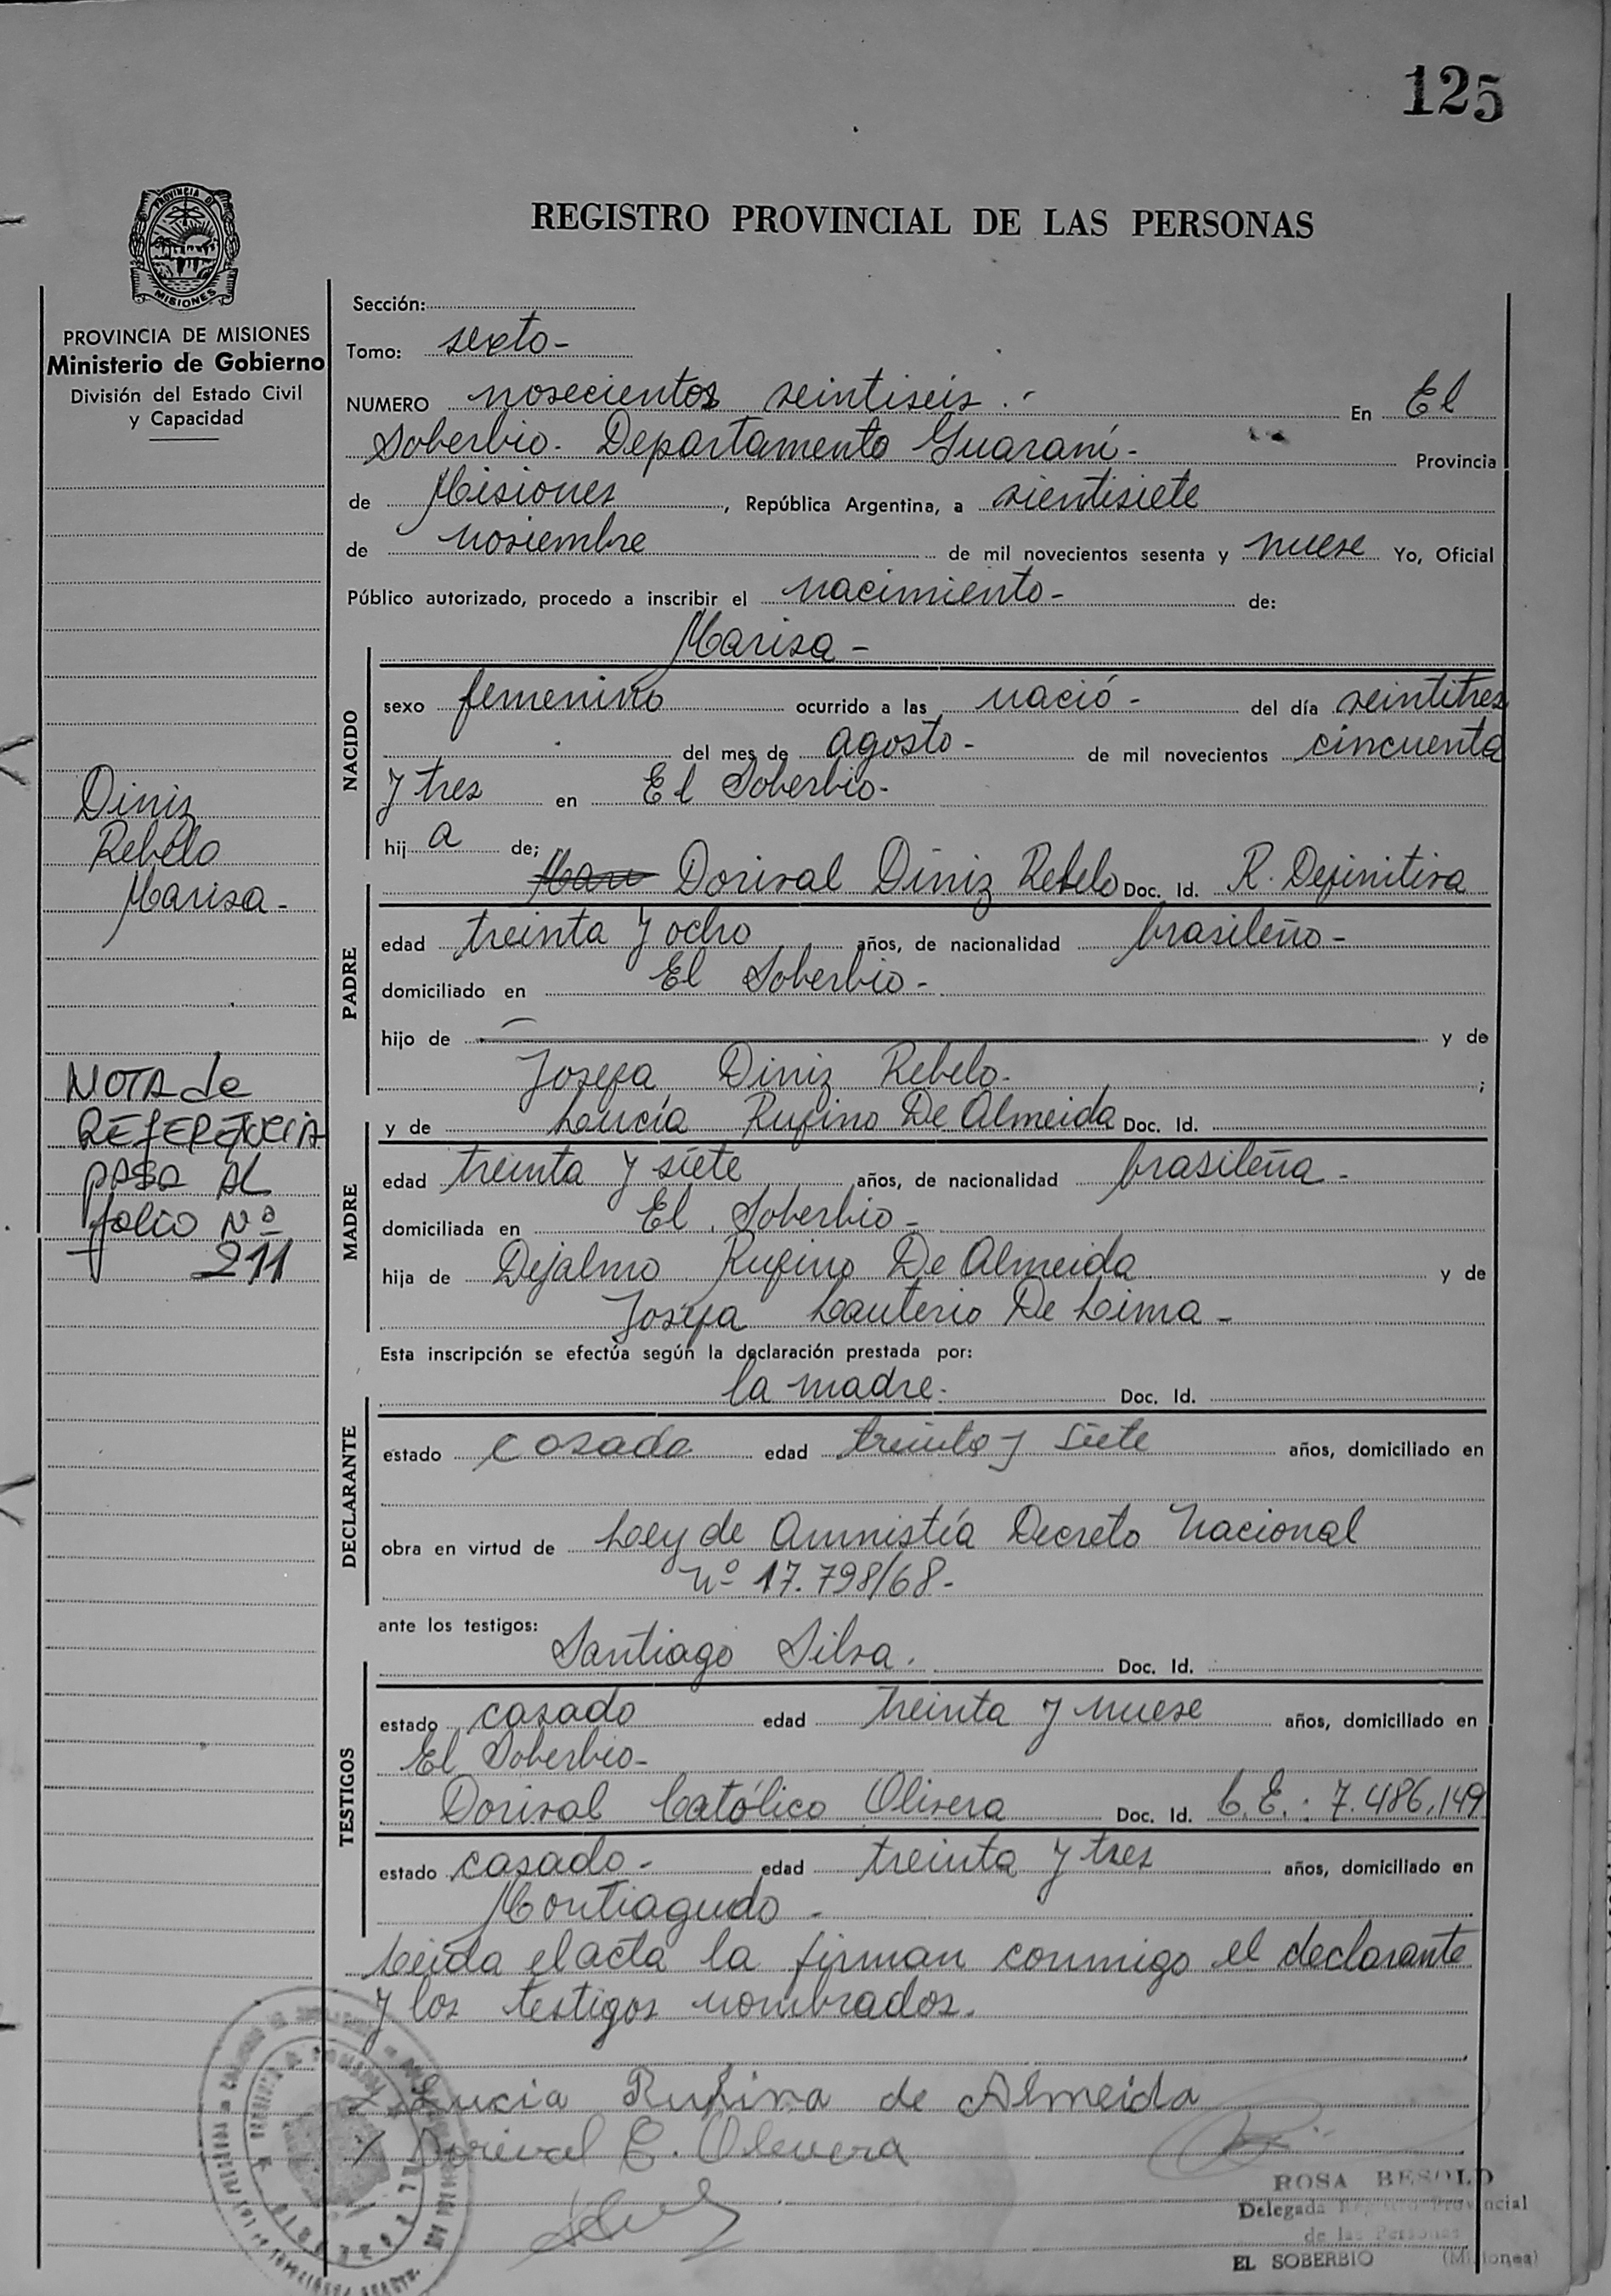 125
PROVINCIA DE
MISIONES
REGISTRO PROVINCIAL DE LAS PERSONAS
PROVINCIA DE MISIONES
Ministerio de Gobierno
División del Estado Civil
y Capacidad
Sección:
Tomo: sexto-
NUMERO novecientos veintiseis.- En El
Soberbio- Departamento Guaraní- Provincia
de Misiones, República Argentina, a vientisiete
de noviembre de mil novecientos sesenta y nueve Yo, Oficial
Público autorizado, procedo a inscribir el nacimiento- de:
Marisa-
NACIDO
sexo femenino ocurrido a las nació- del día veintitres
del mes de agosto- de mil novecientos cincuenta
y tres en El Soberbio-
hij a de;
Diniz
Rebelo
Marisa-
PADRE
Dorival Diniz Rebelo Doc. Id. R. Definitiva
edad treinta y ocho años, de nacionalidad brasileño-
domiciliado en El Soberbio-
hijo de y de
Josefa Diniz Rebelo- ;
NOTA de
REFERENCIA
PASA AL
folio Nº
211
MADRE
y de Lucía Rufino De Almeida Doc. Id.
edad treinta y siete años, de nacionalidad brasileña-
domiciliada en El Soberbio-
hija de Dejalmo Rufino De Almeida y de
Josefa Lauterio De Lima-
Esta inscripción se efectúa según la declaración prestada por:
la madre- Doc. Id.
DECLARANTE
estado casada edad treinta y siete años, domiciliado en
obra en virtud de Ley de Amnistía Decreto Nacional
Nº 17.798/68-
ante los testigos:
Santiago Silva. Doc. Id.
TESTIGOS
estado casado edad treinta y nueve años, domiciliado en
El Soberbio-
Dorival Católico Olivera Doc. Id. C.E.: 7.486.149
estado casado- edad treinta y tres años, domiciliado en
Montiagudo-
Leída el acta la firman conmigo el declarante
y los testigos nombrados.
Lucia Rufina de Almeida
Dorival C. Olevera
ROSA BESOLD
Delegada Registro Provincial
de las Personas
EL SOBERBIO (Misiones)